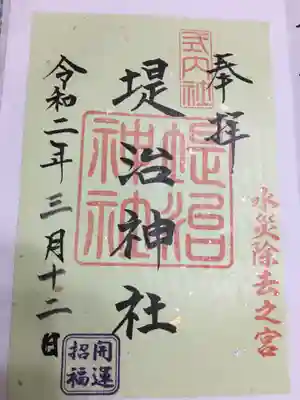 奉拝
式内社
水災除去之宮
堤治神社
堤治神社
令和二年三月十二日
開運
招福